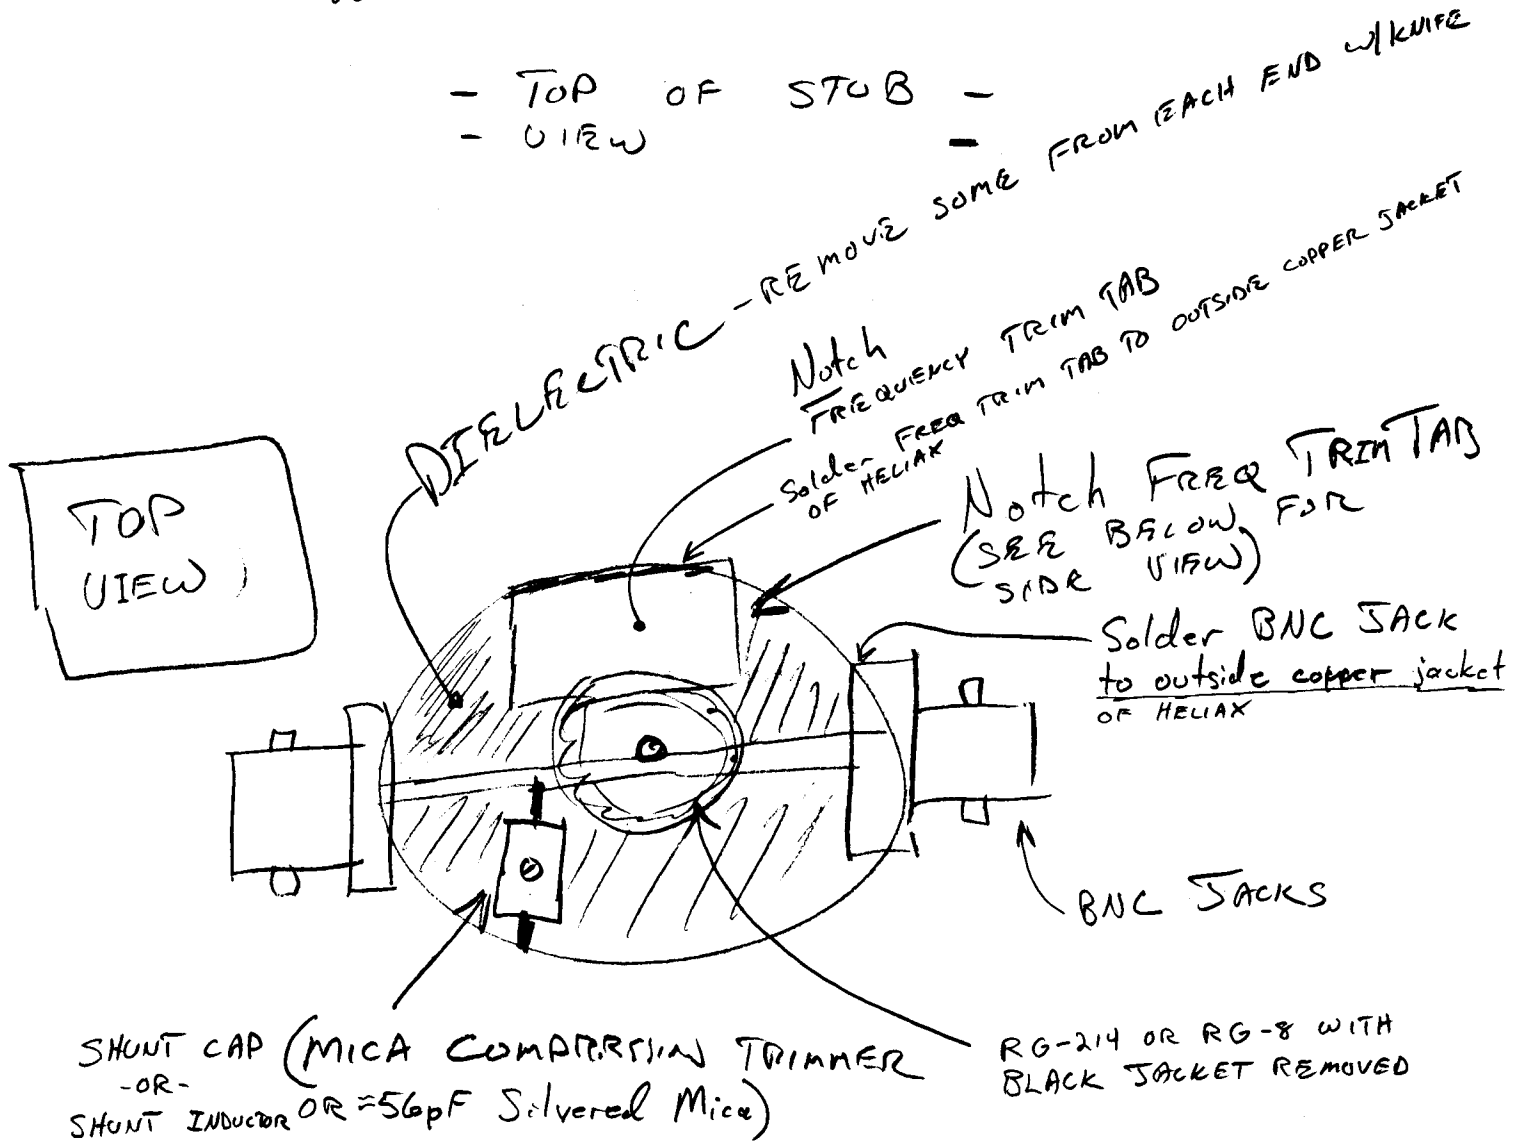 - TOP OF STUB -
- VIEW -
DIELECTRIC - REMOVE SOME FROM EACH END W/KNIFE
Notch
FREQUENCY TRIM TAB
Solder FREQ TRIM TAB TO OUTSIDE COPPER JACKET
OF HELIAX
Notch FREQ TRIM TAB
(SEE BELOW FOR
SIDE VIEW)
TOP
VIEW
Solder BNC JACK
to outside copper jacket
OF HELIAX
BNC JACKS
SHUNT CAP (MICA COMPRRSSIN TRIMMER
-OR-
SHUNT INDUCTOR OR ≈56pF Silvered Mica)
RG-214 OR RG-8 WITH
BLACK JACKET REMOVED